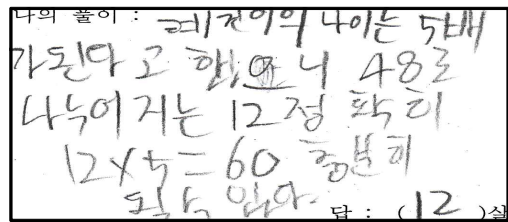 나의 풀이 : 예진이의 나이는 5배
가된다고 했으니 48로
나누어지는 12정 확히
12×5=60 충분히
될수 있다.
답 : ( 12 )살